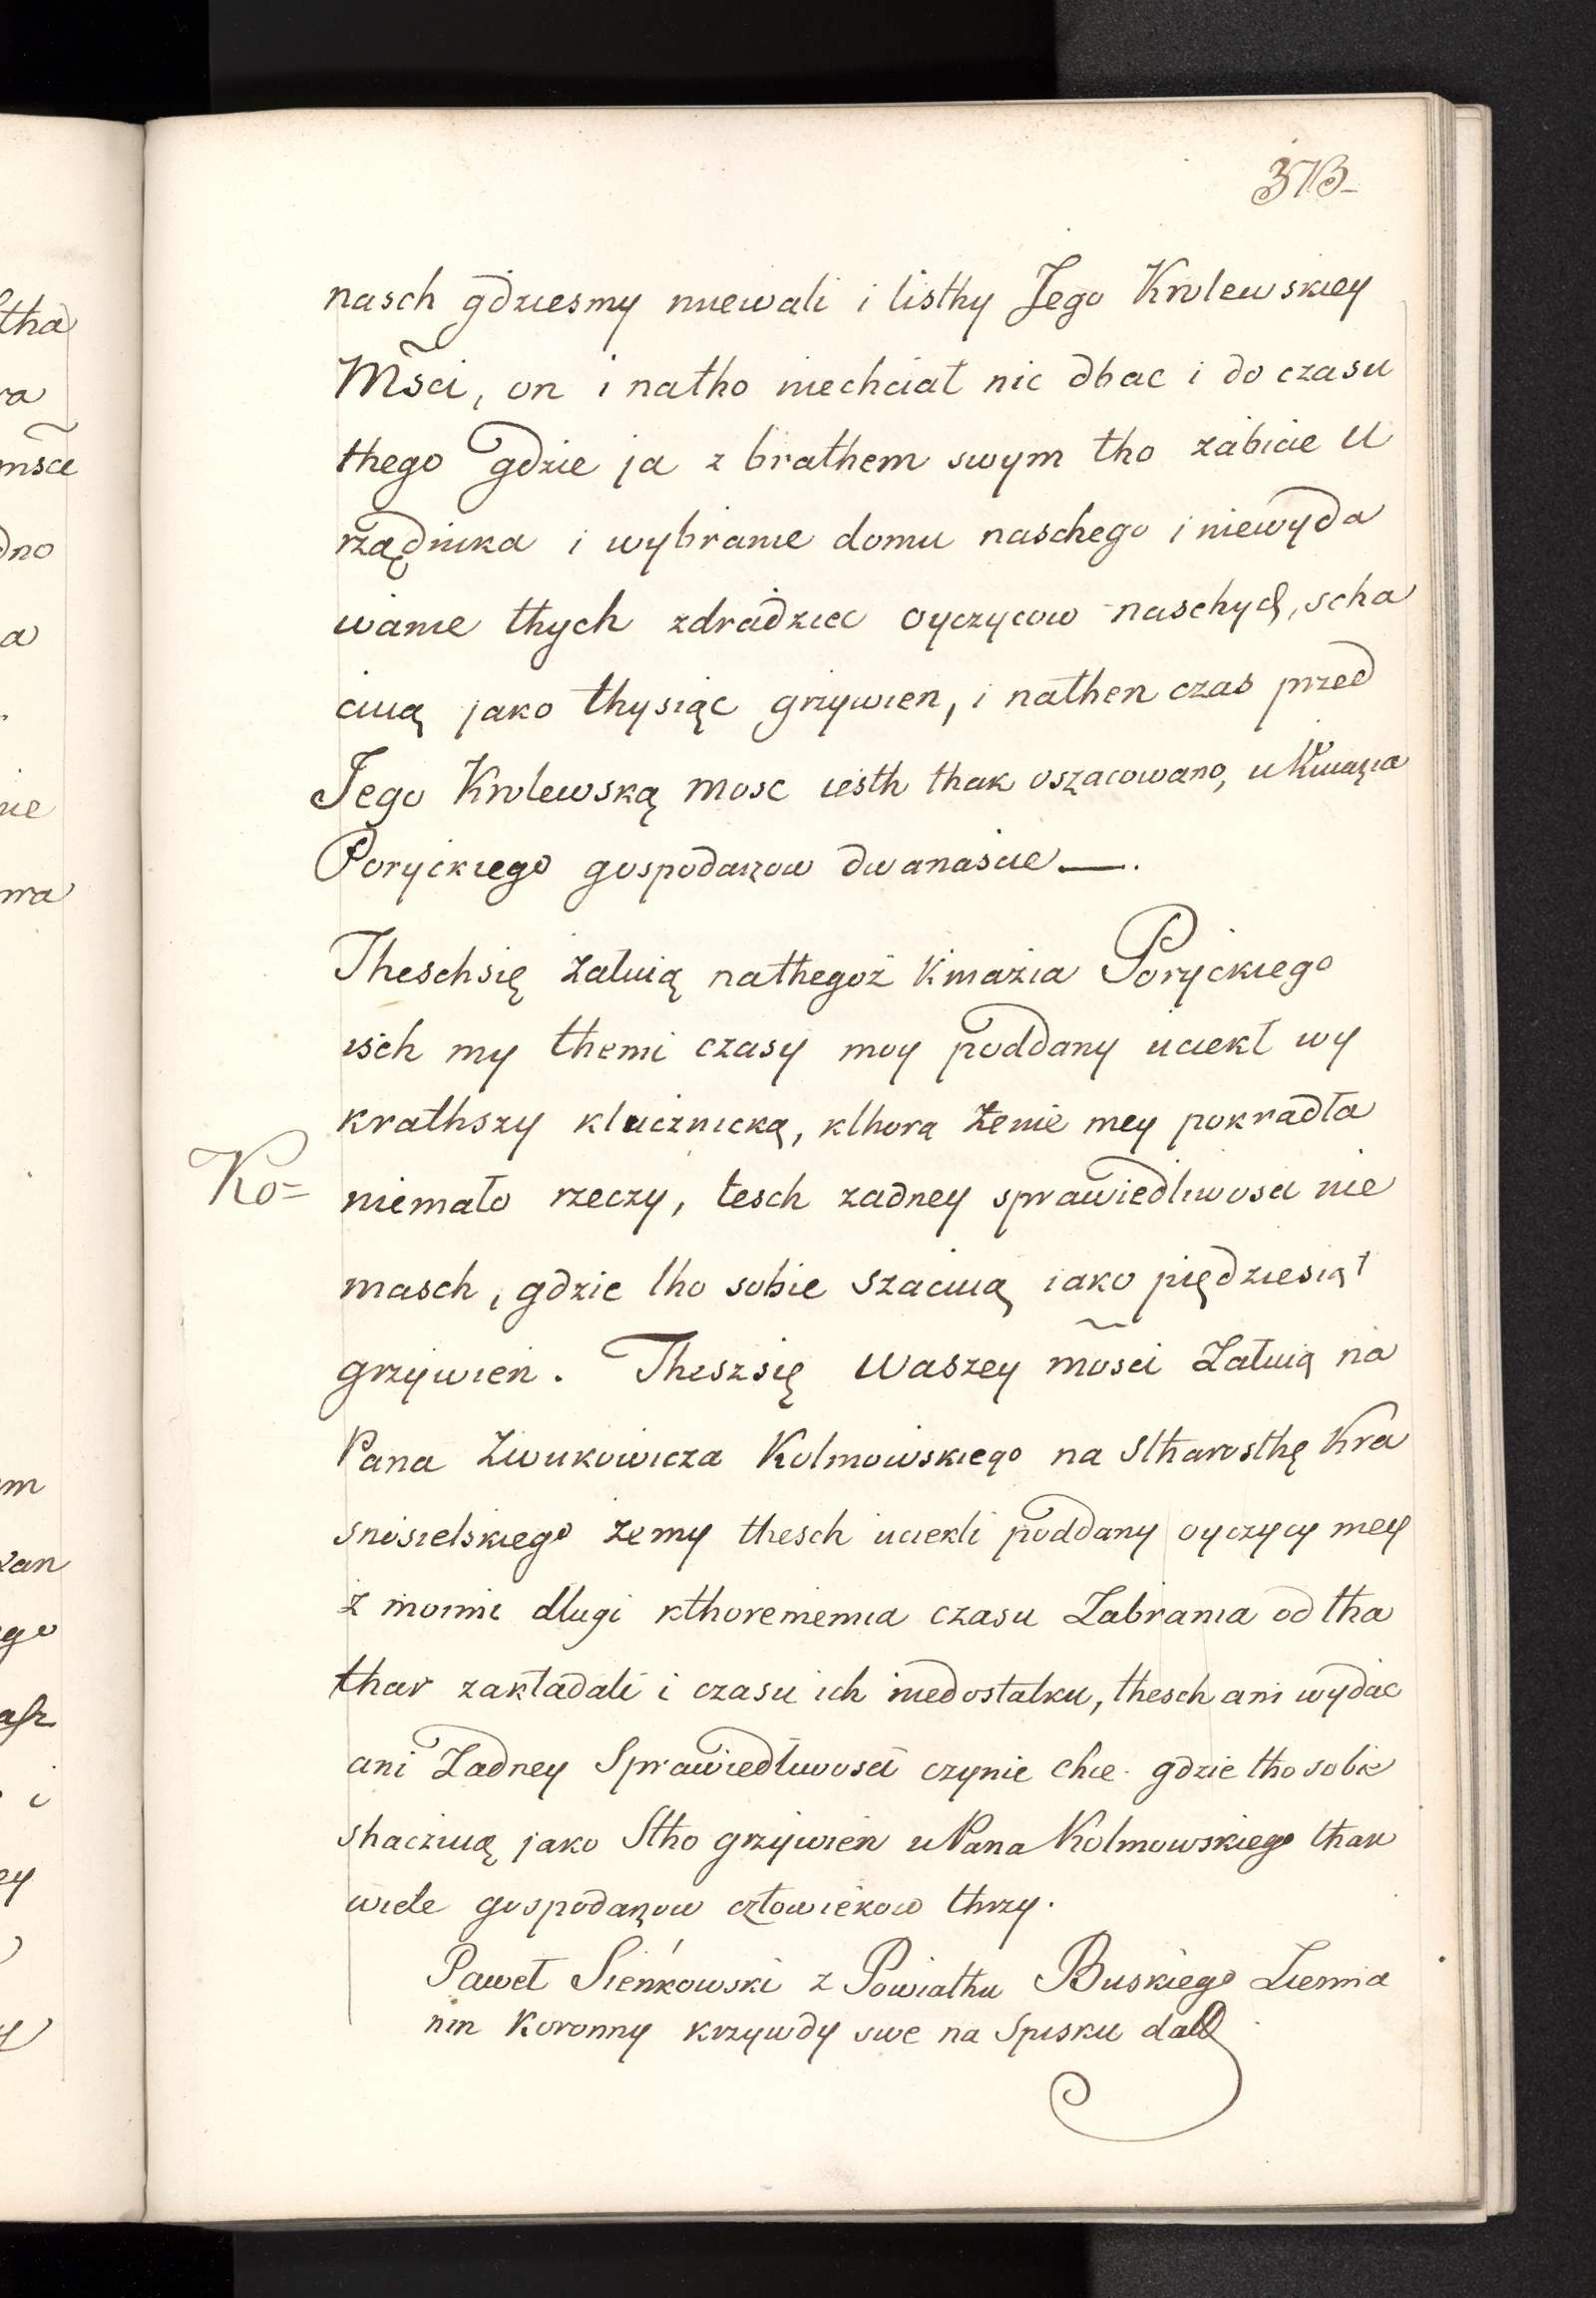 373
nasch gdziesmy miewali i listhy Jego Krolewskiey
Msci, on i natho niechciał nic dbac i do czasu
thego gdzie ja z brathem swym tho zabicie U
rządnika i wybranie domu naschego i niewyda
wanie thych zdradziec oyczycow naschych, scha
cuią jako thysiąc grzywien, i nathen czas przed
Jego Krolewską mosc iesth thak oszacowano, u Kniazia
Poryckiego gospodarzow dwanascie —.
Theschsię żaluią nathegoż Kniazia Poryckiego
isch my themi czasy moy poddany uciekł wy
krathszy kluczniczką, kthora żenie mey pokradła
niemało rzeczy, tesch zadney sprawiedliwosci nie
masch, gdzie tho sobie szacuią iako piędziesiąt
grzywien. Theszsię Waszey mosci Załuią na
Pana Zwukowicza Kolmowskiego na Stharosthę Kra
snosielskiego żemy thesch uciekli poddany oyczycy mey
z moimi dlugi kthoremiemia czasu Zabrania od tha
thar zakładali i czasu ich niedostatku, thesch ani wydac
ani Zadney Sprawiedliwosci czynic chce. gdzie tho sobie
shaczuią jako Stho grzywien u Pana Kolmowskiego thak
wiele gospodarzow człowiekow thrzy.
Paweł Sieńkowski z Powiathu Buskiego Ziemia
nin Koronny krzywdy swe na Spisku dall
Ko=